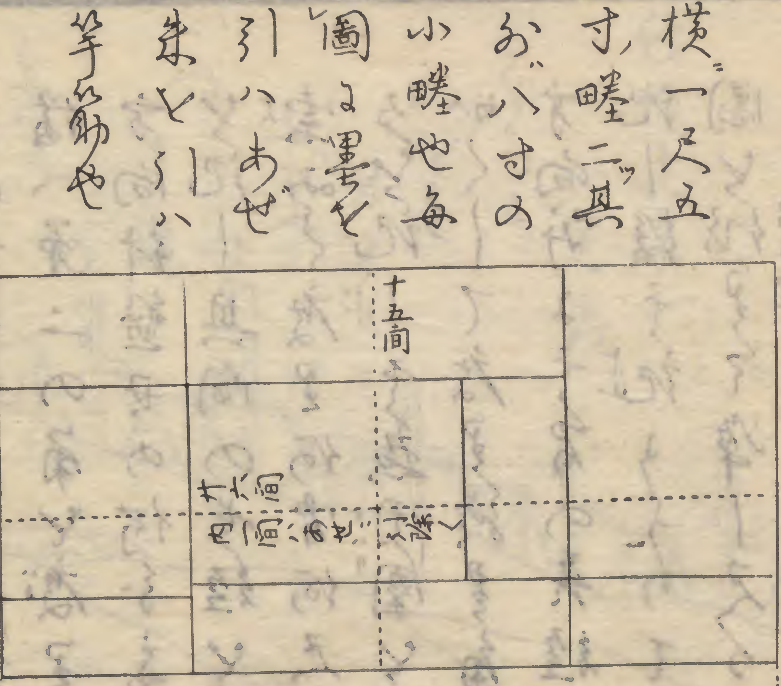 横ニ一尺五
寸、畻二ッ其
外ハ八寸の
小畻也毎
圖に墨を
引ハあぜ
朱を引ハ
竿筋也
十五間
廾六間
内一間ハあぜニ引除く